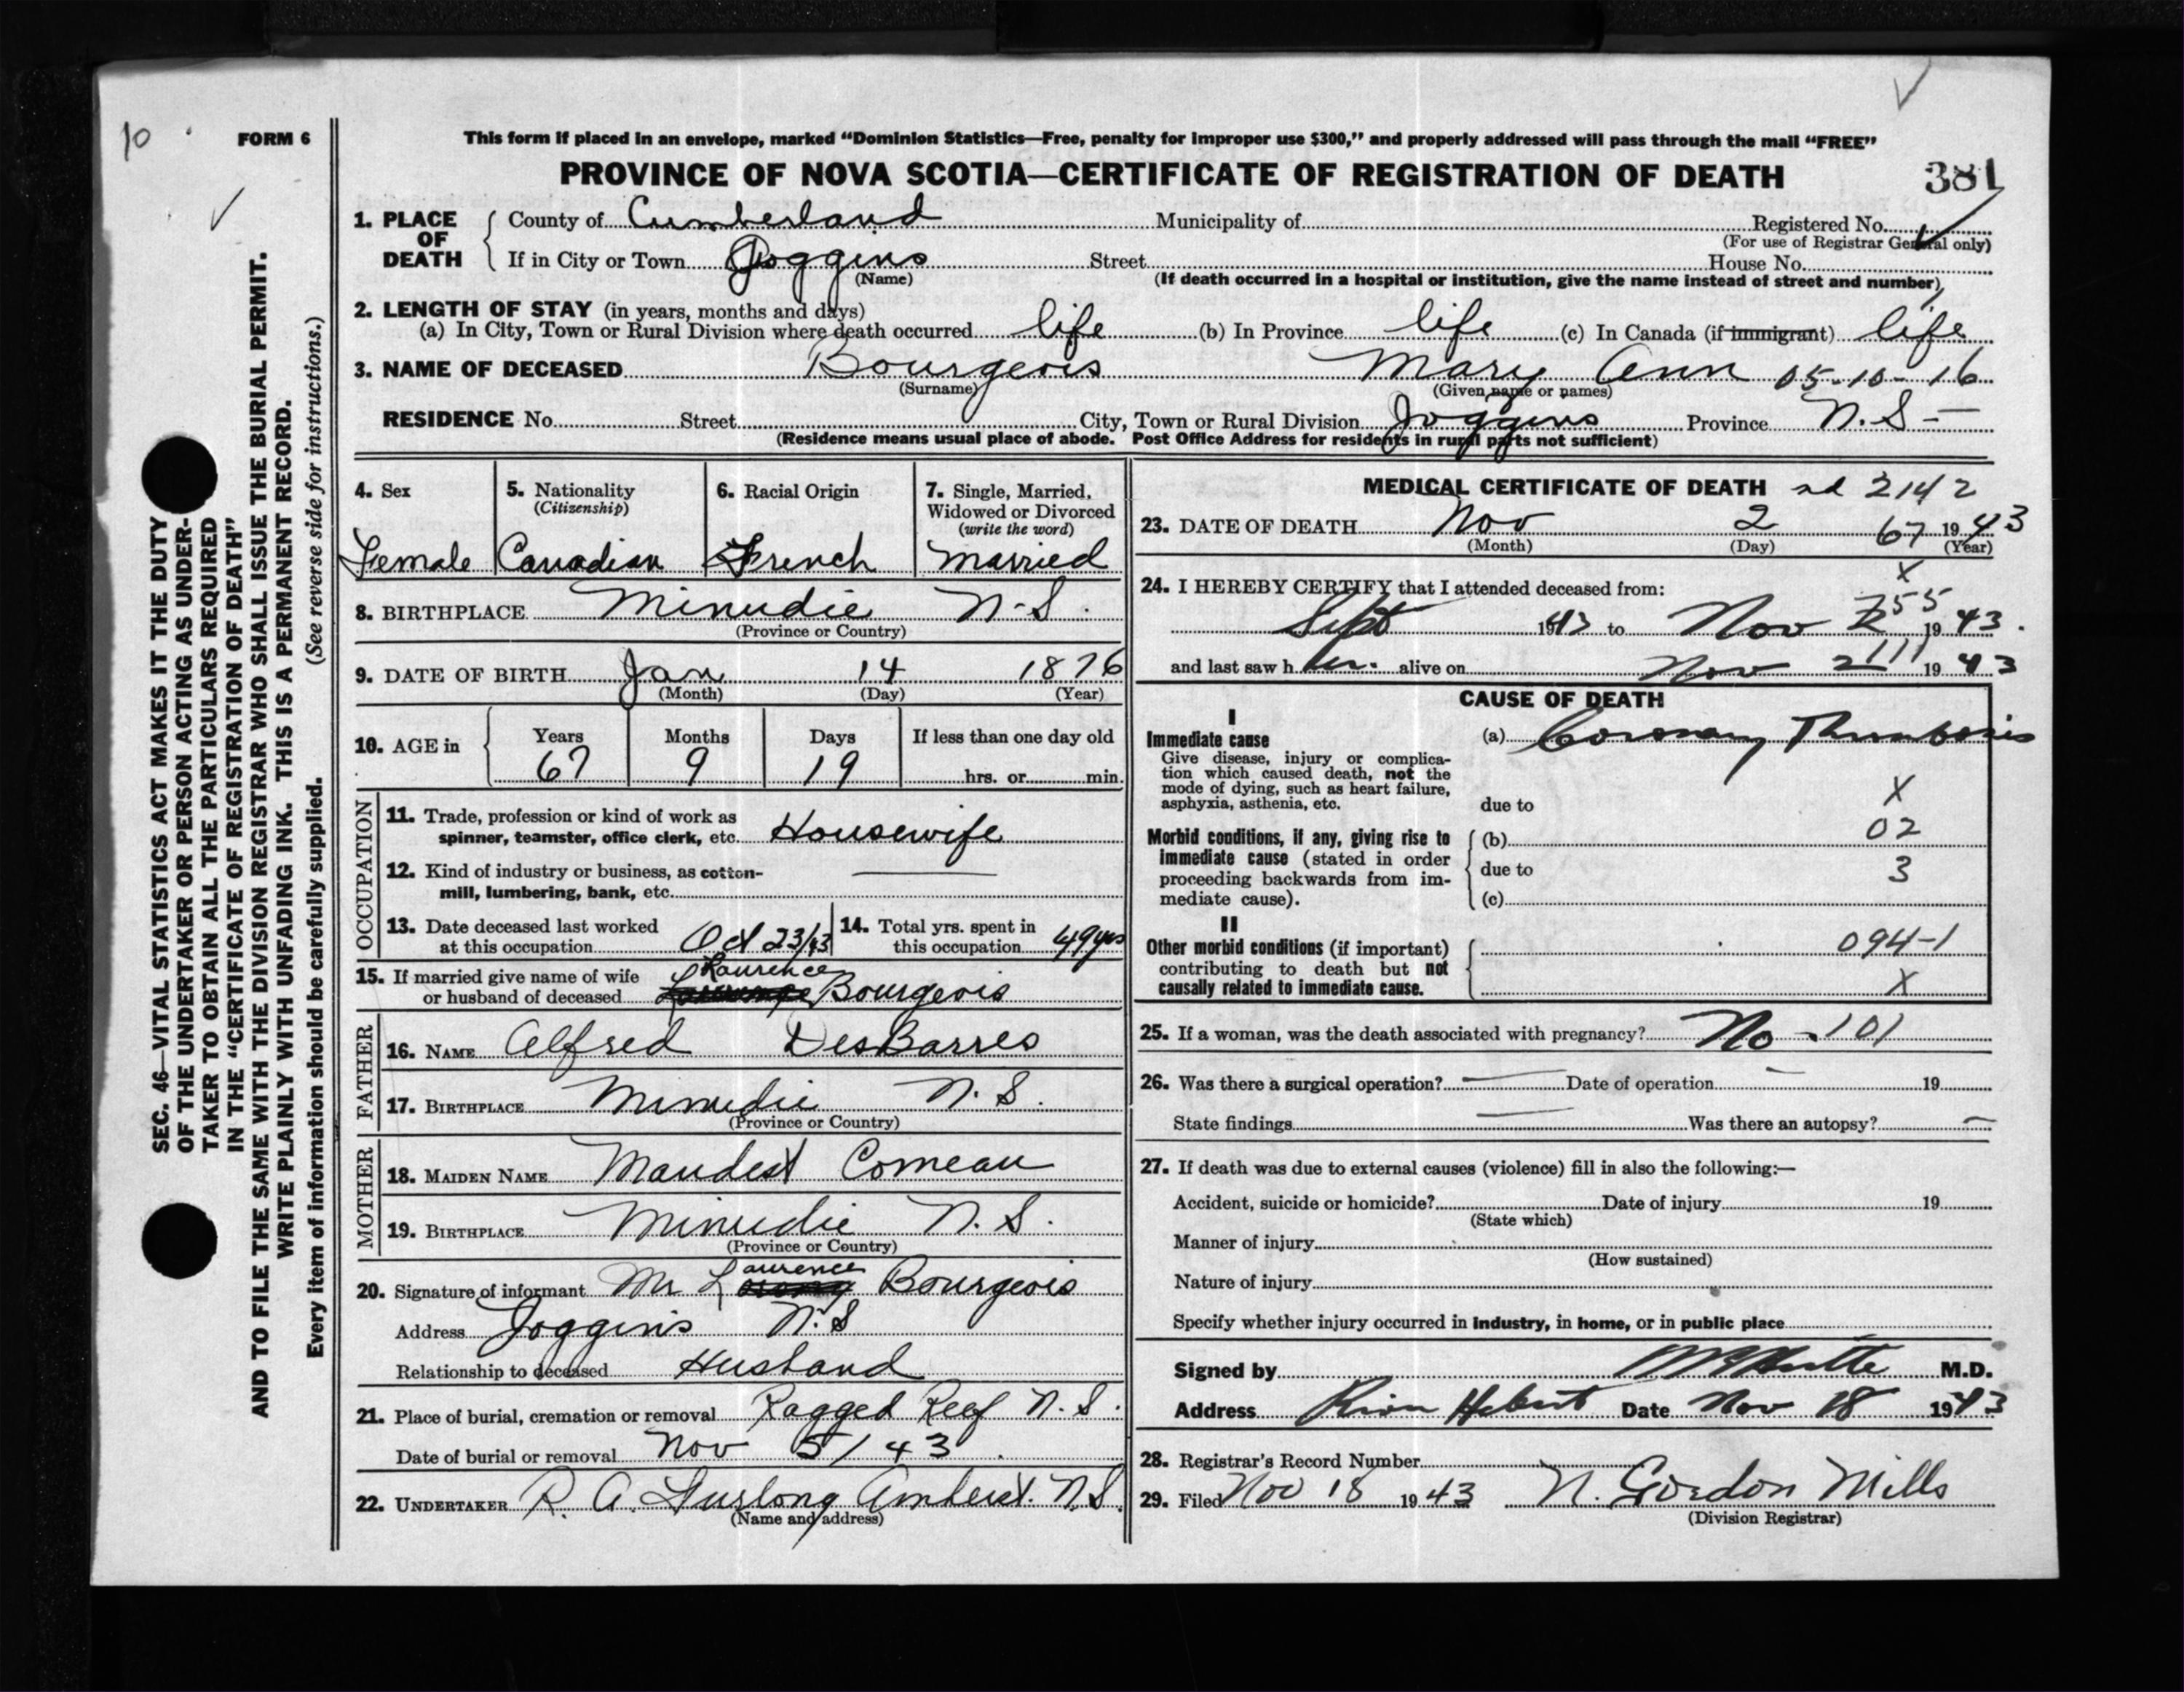 10
FORM 6
This form if placed in an envelope, marked “Dominion Statistics—Free, penalty for improper use $300,” and properly addressed will pass through the mail “FREE”
PROVINCE OF NOVA SCOTIA—CERTIFICATE OF REGISTRATION OF DEATH
381
1. PLACE OF DEATH
County of Cumberland Municipality of Registered No.
(For use of Registrar General only)
If in City or Town Joggins Street House No.
(Name) (If death occurred in a hospital or institution, give the name instead of street and number)
2. LENGTH OF STAY (in years, months and days)
(a) In City, Town or Rural Division where death occurred life (b) In Province life (c) In Canada (if immigrant) life
3. NAME OF DECEASED Bourgeois Mary Ann 05-10-16
(Surname) (Given name or names)
RESIDENCE No. Street City, Town or Rural Division Joggins Province N.S—
(Residence means usual place of abode. Post Office Address for residents in rural parts not sufficient)
4. Sex
Female
5. Nationality
(Citizenship)
Canadian
6. Racial Origin
French
7. Single, Married,
Widowed or Divorced
(write the word)
Married
8. BIRTHPLACE Minudie N-S.
(Province or Country)
9. DATE OF BIRTH Jan 14 1876
(Month) (Day) (Year)
10. AGE in
Years Months Days If less than one day old
67 9 19 hrs. or min.
OCCUPATION
11. Trade, profession or kind of work as
spinner, teamster, office clerk, etc. Housewife
12. Kind of industry or business, as cotton-
mill, lumbering, bank, etc.
13. Date deceased last worked
at this occupation Oct 23/43
14. Total yrs. spent in
this occupation 49 yrs
15. If married give name of wife Laurence
or husband of deceased Bourgeois
FATHER
16. NAME Alfred DesBarres
17. BIRTHPLACE Minudie N.S.
(Province or Country)
MOTHER
18. MAIDEN NAME Maudest Comeau
19. BIRTHPLACE Minudie N.S.
(Province or Country)
20. Signature of informant Mr Laurence Bourgeois
Address Joggins N.S
Relationship to deceased Husband
21. Place of burial, cremation or removal Ragged Reef N.S.
Date of burial or removal Nov 5/43.
22. UNDERTAKER R. A. Furlong Amherst. N.S.
(Name and address)
MEDICAL CERTIFICATE OF DEATH nd 2142
23. DATE OF DEATH Nov 2 67 1943
(Month) (Day) (Year)
X
24. I HEREBY CERTIFY that I attended deceased from:
55
Sept 1943 to Nov 2 1943.
and last saw her alive on Nov 2 111 1943
CAUSE OF DEATH
I
Immediate cause
Give disease, injury or complica-
tion which caused death, not the
mode of dying, such as heart failure,
asphyxia, asthenia, etc.
(a) Coronary Thrombosis
due to X
Morbid conditions, if any, giving rise to
immediate cause (stated in order
proceeding backwards from im-
mediate cause).
(b) 02
due to 3
(c)
II
Other morbid conditions (if important)
contributing to death but not
causally related to immediate cause.
094-1
X
25. If a woman, was the death associated with pregnancy? No - 101
26. Was there a surgical operation? — Date of operation — 19
State findings — Was there an autopsy? —
27. If death was due to external causes (violence) fill in also the following:—
Accident, suicide or homicide? Date of injury 19
(State which)
Manner of injury
(How sustained)
Nature of injury
Specify whether injury occurred in industry, in home, or in public place
Signed by M.D.
Address River Hebert Date Nov 18 1943
28. Registrar's Record Number
29. Filed Nov 18 1943 N. Gordon Mills
(Division Registrar)
SEC. 46—VITAL STATISTICS ACT MAKES IT THE DUTY
OF THE UNDERTAKER OR PERSON ACTING AS UNDER-
TAKER TO OBTAIN ALL THE PARTICULARS REQUIRED
IN THE “CERTIFICATE OF REGISTRATION OF DEATH”
AND TO FILE THE SAME WITH THE DIVISION REGISTRAR WHO SHALL ISSUE THE BURIAL PERMIT.
WRITE PLAINLY WITH UNFADING INK. THIS IS A PERMANENT RECORD.
Every item of information should be carefully supplied. (See reverse side for instructions.)